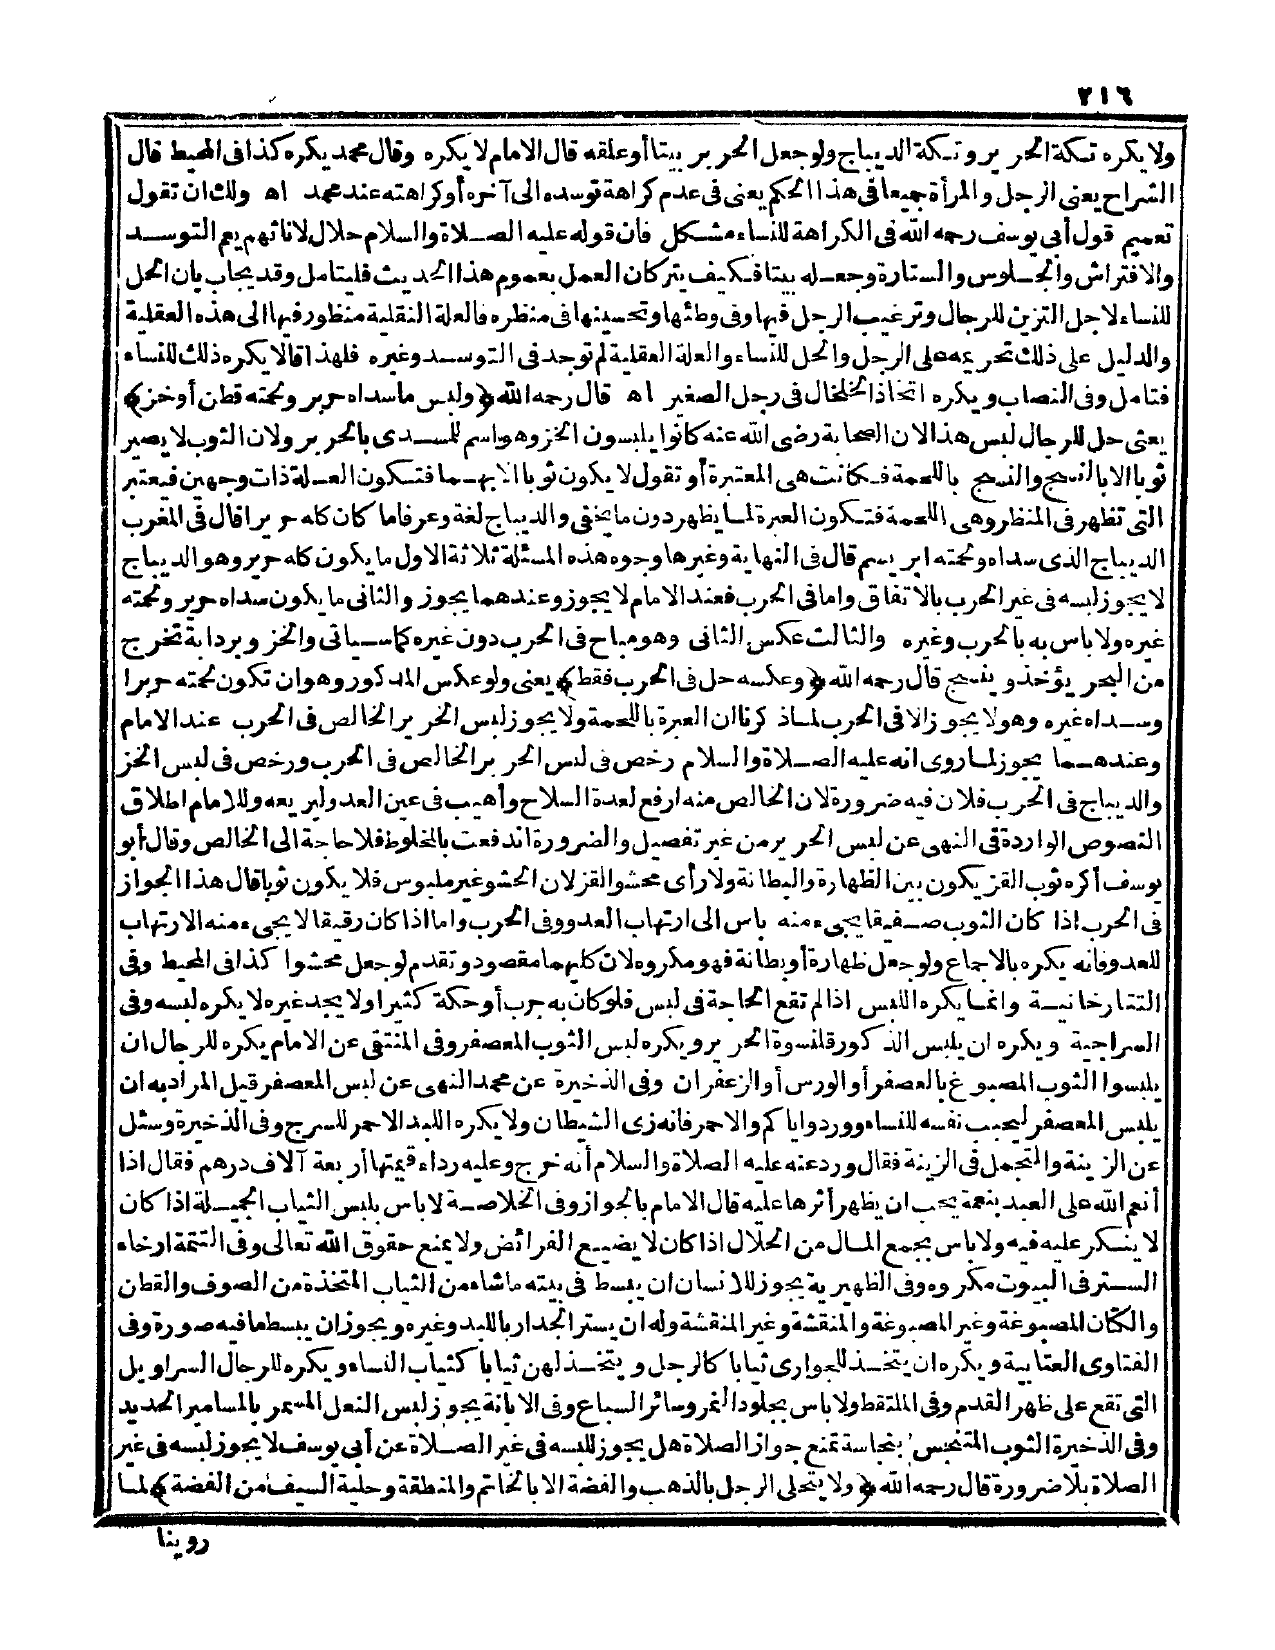 ٢١٦
ولا يكره تكة الحرير وتكة الديباج ولو جعل الحرير بيتا أو علقه قال الامام لا يكره وقال محمد يكره كذا فى المحيط قال
الشراح يعنى الرجل والمرأة جميعا فى هذا الحكم يعنى فى عدم كراهة توسده الى آخره أو كراهته عند محمد اه ولك ان تقول
تعميم قول أبى يوسف رحمه الله فى الكراهة للنساء مشكل فان قوله عليه الصلاة والسلام حلال لاناثهم يعم التوسد
والافتراش والجلوس والستارة وجعله بيتا فكيف يتركان العمل بعموم هذا الحديث فليتامل وقد يجاب بان الحل
للنساء لاجل التزين للرجال وترغيب الرجل فيها وفى وطئها وتحسينها فى منظره فالعلة النقلية منظور فيها الى هذه العقلية
والدليل على ذلك تحريمه على الرجل والحل للنساء والعلة العقلية لم توجد فى التوسد وغيره فلهذا قالا يكره ذلك للنساء
فتامل وفى النصاب ويكره اتخاذ الخلخال فى رجل الصغير اه قال رحمه الله ﴿ولبس ما سداه حرير ولحمته قطن أو خز﴾
يعنى حل للرجال لبس هذا لان الصحابة رضى الله عنه كانوا يلبسون الخز وهو اسم للمسدى بالحرير ولان الثوب لا يصير
ثوبا الا بالنسج والنسج باللحمة فكانت هى المعتبرة أو تقول لا يكون ثوبا الا بهما فتكون العلة ذات وجهين فيعتبر
التى تظهر فى المنظر وهى اللحمة فتكون العبرة لما يظهر دون ما يخفى والديباج لغة وعرفا ما كان كله حريرا قال فى المغرب
الديباج الذى سداه ولحمته ابريسم قال فى النهاية وغيرها وجوه هذه المسئلة ثلاثة الاول ما يكون كله حرير وهو الديباج
لا يجوز لبسه فى غير الحرب بالاتفاق واما فى الحرب فعند الامام لا يجوز وعندهما يجوز والثانى ما يكون سداه حرير ولحمته
غيره ولا باس به بالحرب وغيره والثالث عكس الثانى وهو مباح فى الحرب دون غيره كما سياتى والخز وبر دابة تخرج
من البحر يؤخذ وينسج قال رحمه الله ﴿وعكسه حل فى الحرب فقط﴾ يعنى ولو عكس المذكور وهو ان تكون لحمته حريرا
وسداه غيره وهو لا يجوز الا فى الحرب لما ذكرنا ان العبرة باللحمة ولا يجوز لبس الحرير الخالص فى الحرب عند الامام
وعندهما يجوز لما روى انه عليه الصلاة والسلام رخص فى لبس الحرير الخالص فى الحرب ورخص فى لبس الخز
والديباج فى الحرب فلان فيه ضرورة لان الخالص منه ارفع لعدة السلاح وأهيب فى عين العدو لبريعه وللامام اطلاق
النصوص الواردة فى النهى عن لبس الحرير من غير تفصيل والضرورة اندفعت بالمخلوط فلا حاجة الى الخالص وقال أبو
يوسف أكره ثوب القز يكون بين الظهارة والبطانة ولا رأى محشو القز لان الحشو غير ملبوس فلا يكون ثوبا قال هذا الجواز
فى الحرب اذا كان الثوب صفيقا يجىء منه باس الى ارتهاب العدو وفى الحرب واما اذا كان رقيقا لا يجىء منه الارتهاب
للعدو فانه يكره بالاجماع ولو جعل ظهارة أو بطانة فهو مكروه لان كليهما مقصود وتقدم لو جعل محشوا كذا فى المحيط وفى
التتارخانية وانما يكره اللبس اذا لم تقع الحاجة فى لبس فلو كان به جرب أو حكة كثيرا ولا يجد غيره لا يكره لبسه وفى
السراجية ويكره ان يلبس الذكور قلنسوة الحرير ويكره لبس الثوب المعصفر وفى المنتقى عن الامام يكره للرجال ان
يلبسوا الثوب المصبوغ بالعصفر أو الورس أو الزعفران وفى الذخيرة عن محمد النهى عن لبس المعصفر قيل المراد به ان
يلبس المعصفر ليحبب نفسه للنساء وورد واياكم والاحمر فانه زى الشيطان ولا يكره اللبد الاحمر للسرج وفى الذخيرة وسئل
عن الزينة والتجمل فى الزينة فقال ورد عنه عليه الصلاة والسلام أنه خرج وعليه رداء قيمتها أربعة آلاف درهم فقال اذا
أنعم الله على العبد بنعمة يحب ان يظهر أثرها عليه قال الامام بالجواز وفى الخلاصة لا باس بلبس الثياب الجميلة اذا كان
لا ينكر عليه فيه ولا باس بجمع المال من الحلال اذا كان لا يضيع الفرائض ولا يمنع حقوق الله تعالى وفى التتمة ارخاء
الستر فى البيوت مكروه وفى الظهيرية يجوز للانسان ان يبسط فى بيته ما شاء من الثياب المتخذة من الصوف والقطن
والكتان المصبوغة وغير المصبوغة والمنقشة وغير المنقشة وله ان يستر الجدار باللبد وغيره ويجوز ان يبسط ما فيه صورة وفى
الفتاوى العتابية ويكره ان يتخذ للجوارى ثيابا كالرجل ويتخذ لهن ثيابا كثياب النساء ويكره للرجال السراويل
التى تقع على ظهر القدم وفى الملتقط ولا باس بجلود النمر وسائر السباع وفى الابانة يجوز لبس النعل المسمر بالمسامير الحديد
وفى الذخيرة الثوب المتنجس بنجاسة تمنع جواز الصلاة هل يجوز للبسه فى غير الصلاة عن أبى يوسف لا يجوز لبسه فى غير
الصلاة بلا ضرورة قال رحمه الله ﴿ولا يتحلى الرجل بالذهب والفضة الا بالخاتم والمنطقة وحلية السيف من الفضة﴾ لما
روينا